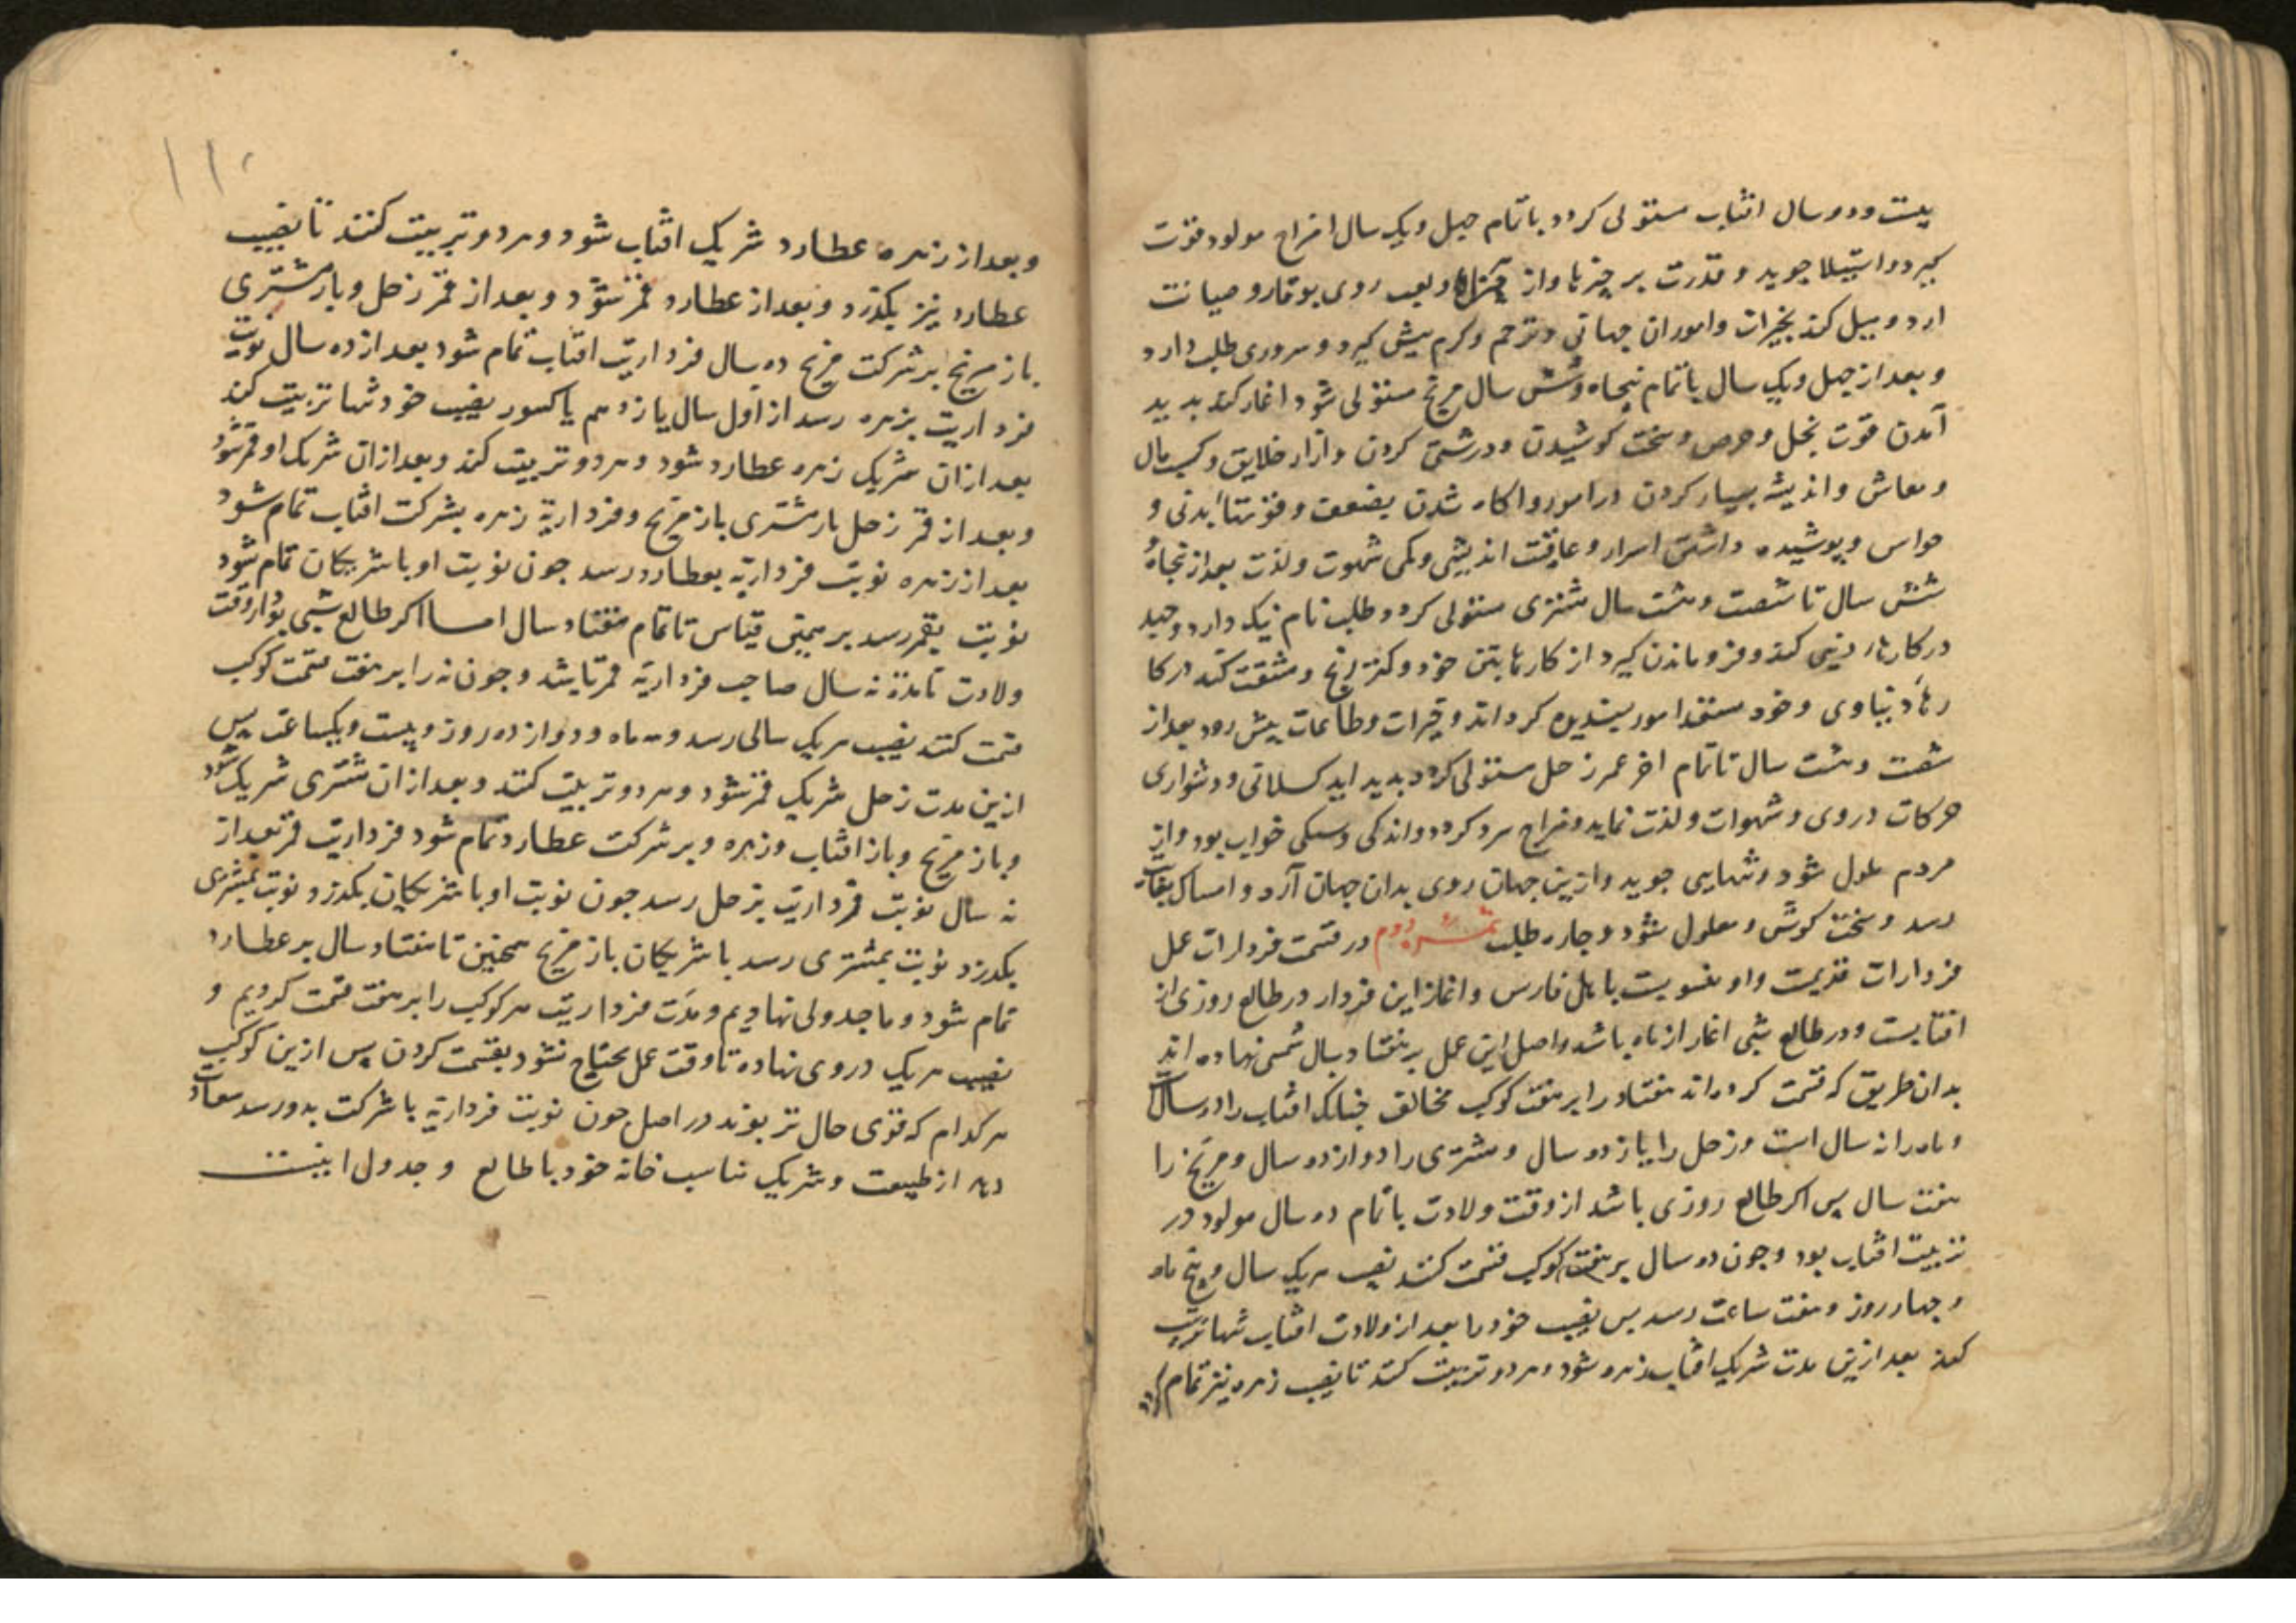 بیست و دو سال افتاب مستولی کردد باتمام چهل و یک سال مزاج مولود قوت
کیرد و استیلا جوید و قدرت بر چیزها و از ولعب روی بوقار و صیانت
ارد و میل کند بخیرات وامور ان جهانی و ترحم و کرم پیش کیرد و سروری طلب دارد
و بعد از چهل و یک سال باتمام پنجاه و شش سال مریخ مستولی شود اغاز کند بدید
آمدن قوت بخل و حرص و سخت کوشیدن و درشتی کردن و ازار خلایق و کسب مال
و معاش و اندیشه بسیار کردن در امور و اکاه شدن بضعف و قوتهاء بدنی و
حواس و پوشیده داشتن اسرار و عاقبت اندیشی و کمی شهوت و لذت بعد از پنجاه
شش سال تا شصت و هشت سال مشتری مستولی کردد طلب نام نیک دارد و جهد
در کارهاء دینی کند و فرو ماندن کیرد از کارها بتن خود و کمتر رنج و مشقت کند در کا
رهاء دنیاوی و خود مستعد امور پسندیده کرداند و خیرات و طاعات پیش رود بعد از
شصت و هشت سال تا تمام اخر عمر زحل مستولی کردد بدید اید کسلانی و دشواری
حرکات در وی و شهوات و لذت نماید و مزاج سرد کردد و اندکی و سبکی خواب بود و از
مردم ملول شود و تنهایی جوید و ازین جهان روی بدان جهان آرد و امساک بغایت
رسد و سخت کوش و معلول شود و چاره طلب دوم در قسمت فردارات عمل
فردارات قدیمست و او منسوبست باهل فارس و اغاز این فردار در طالع روزی از
افتابست و در طالع شبی اغاز از ماه باشد و اصل این عمل بر هفتاد سال شمسی نهاده اند
بدان طریق که قسمت کرده اند هفتاد را بر هفت کوکب مخالف چنانک افتاب را ده سال
و ماه را نه سال است و زحل را یازده سال و مشتری را دوازده سال و مریخ را
هفت سال پس اکر طالع روزی باشد از وقت ولادت باتمام ده سال مولود در
تربیت افتاب بود و جون ده سال بر هفت کوکب قسمت کنند نصیب هر یک سال و پنج ماه
و چهار روز و هفت ساعت رسد پس نصیب خود را بعد از ولادت افتاب تنها تربیت
کند بعد ازین مدت شریک افتاب زهره شود و هر دو تربیت کنند تا نصیب زهره نیز تمام کردد
۱۱۰
و بعد از زهره عطارد شریک افتاب شود و هر دو تربیت کنند تا نصیب
عطارد نیز بکذرد و بعد از عطارد قمر شود و بعد از قمر زحل و باز مشتری
باز مریخ بر شرکت مریخ ده سال فرداریت افتاب تمام شود بعد از ده سال نوبت
فرداریت بزهره رسد از اول سال یازدهم با کسور نصیب خود تنها تربیت کند
بعد از ان شریک زهره عطارد شود و هر دو تربیت کنند و بعد از ان شریک او قمر شود
و بعد از قمر زحل باز مشتری باز مریخ و فرداریة زهره بشرکت افتاب تمام شود
بعد از زهره نوبت فرداریه بعطارد رسد جون نوبت او با شریکان تمام شود
نوبت بقمر رسد بر همین قیاس تا تمام هفتاد سال اما اکر طالع شبی بود از وقت
ولادت تا مدة نه سال صاحب فرداریه قمر باشد و جون نه را بر هفت قسمت کوکب
قسمت کنند نصیب هر یک سالی رسد و سه ماه و دوازده روز و بیست و یکساعت پس
ازین مدت زحل شریک قمر شود و هر دو تربیت کنند و بعد از ان مشتری شریک شود
و باز مریخ و باز افتاب و زهره و بر شرکت عطارد تمام شود فرداریت قمر بعد از
نه سال نوبت فرداریت بزحل رسد جون نوبت او با شریکان بکذرد نوبت بمشتری
بکذرد نوبت بمشتری رسد با شریکان باز مریخ همچنین تا هفتاد سال بر عطارد
تمام شود و ما جدولی نهادیم و مدت فرداریت هر کوکب را بر هفت قسمت کردیم و
نصیب هر یک در وی نهاده تا وقت عمل محتاج نشود بقسمت کردن پس ازین کوکب
هر کدام که قوی حال تر بوند در اصل جون نوبت فرداریه با شرکت بدو رسد سعادت
دهد از طبیعت و شریک مناسب خانه خود با طالع و جدول اینست